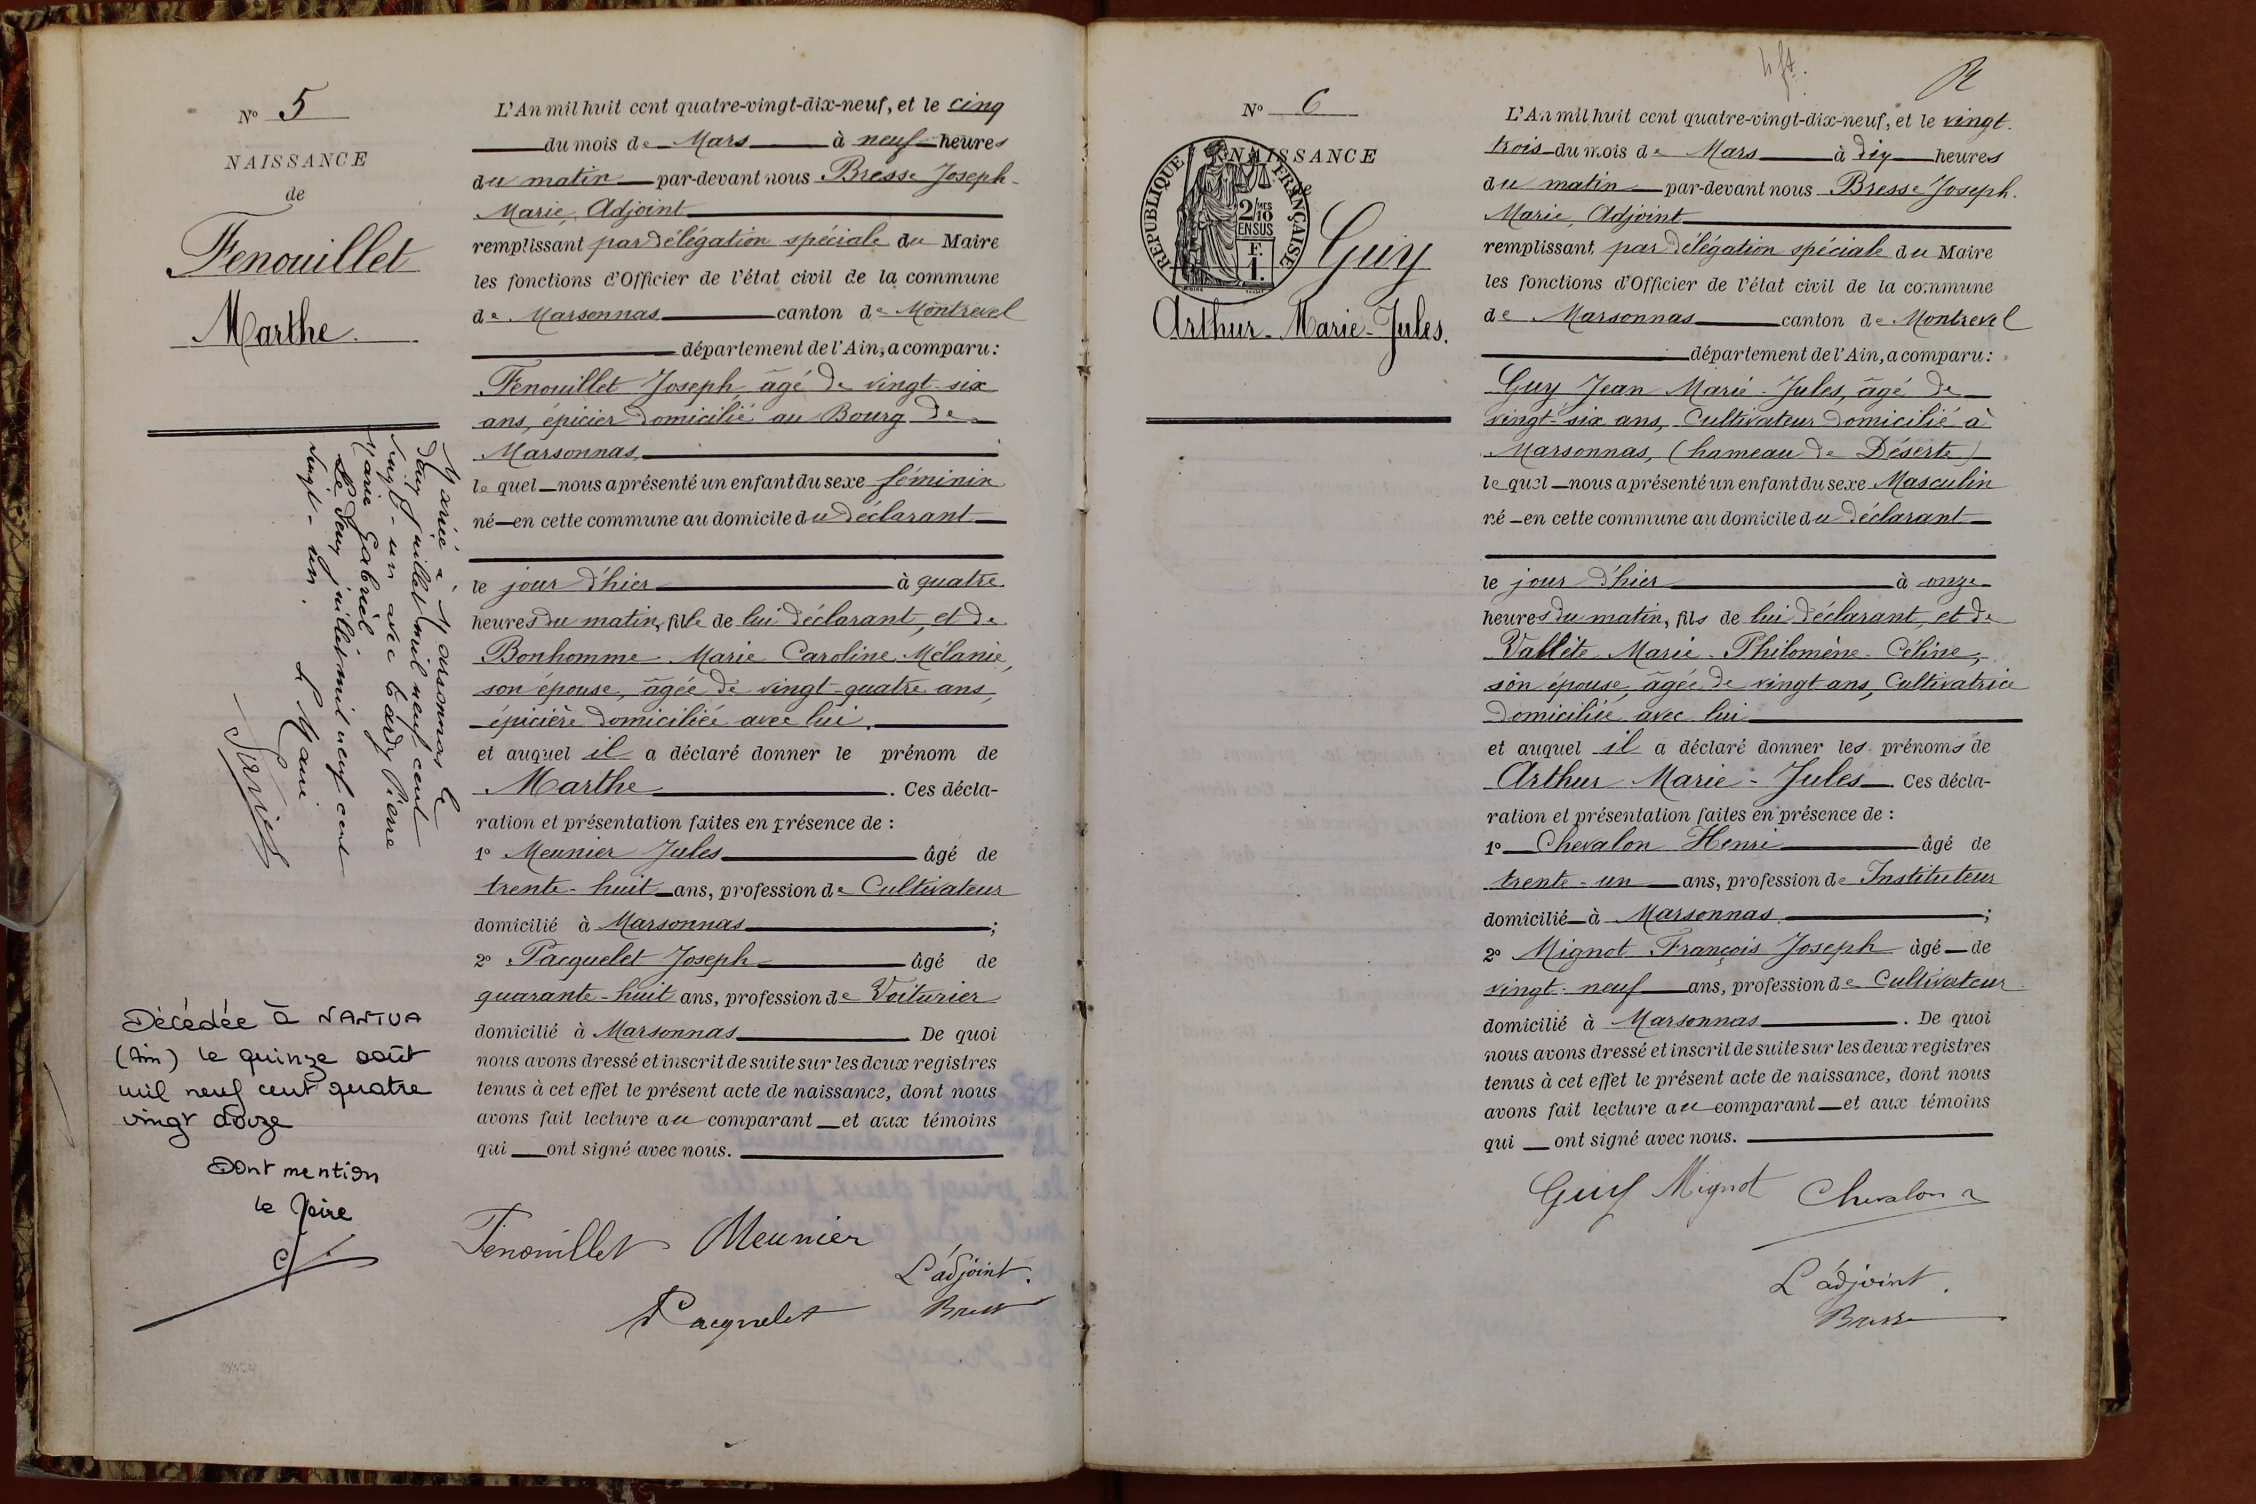 N° 5
NAISSANCE
de
Fenouillet
Marthe.
Marié à Marsonnas le
deux juillet mil neuf cent
vingt-un avec Cardy Pierre
Marie Gabriel
Le deux juillet mil neuf cent
vingt-un.
Le Maire
Décédée à NANTUA
(Ain) le quinze août
mil neuf cent quatre
vingt douze
Dont mention
le Maire
L'An mil huit cent quatre-vingt-dix-neuf, et le cinq
du mois de Mars à neuf heures
du matin par-devant nous Bresse Joseph-
Marie, Adjoint
remplissant par délégation spéciale du Maire
les fonctions d'Officier de l'état civil de la commune
de Marsonnas canton de Montrevel
département de l'Ain, a comparu:
Fenouillet Joseph, âgé de vingt-six
ans, épicier domicilié au Bourg de
Marsonnas,
lequel nous a présenté un enfant du sexe féminin
né en cette commune au domicile du déclarant
le jour d'hier à quatre
heures du matin, fille de lui déclarant, et de
Bonhomme Marie Caroline Mélanie,
son épouse, âgée de vingt-quatre ans,
épicière domiciliée avec lui.
et auquel il a déclaré donner le prénom de
Marthe. Ces décla-
ration et présentation faites en présence de :
1° Meunier Jules âgé de
trente-huit ans, profession de Cultivateur
domicilié à Marsonnas;
2° Pacquelet Joseph âgé de
quarante-huit ans, profession de Voiturier
domicilié à Marsonnas De quoi
nous avons dressé et inscrit de suite sur les deux registres
tenus à cet effet le présent acte de naissance, dont nous
avons fait lecture au comparant et aux témoins
qui ont signé avec nous.
Fenouillet Meunier
L'adjoint.
Pacquelet Bresse
N° 6
NAISSANCE
de
RÉPUBLIQUE FRANÇAISE
2/10
MES
EN SUS
F.
1.
Guy
Arthur-Marie-Jules.
L'An mil huit cent quatre-vingt-dix-neuf, et le vingt-
trois du mois de Mars à dix heures
du matin par-devant nous Bresse Joseph-
Marie, Adjoint
remplissant par délégation spéciale du Maire
les fonctions d'Officier de l'état civil de la commune
de Marsonnas canton de Montrevel
département de l'Ain, a comparu:
Guy Jean Marie-Jules, âgé de
vingt-six ans, Cultivateur domicilié à
Marsonnas, (hameau de Déserte)
lequel nous a présenté un enfant du sexe Masculin
né en cette commune au domicile du déclarant
le jour d'hier à onze
heures du matin, fils de lui déclarant, et de
Vallète Marie-Philomène-Céline,
son épouse, âgée de vingt ans, Cultivatrice
domiciliée avec lui
et auquel il a déclaré donner les prénoms de
Arthur Marie-Jules. Ces décla-
ration et présentation faites en présence de :
1° Chevalon Henri âgé de
trente-un ans, profession de Instituteur
domicilié à Marsonnas;
2° Mignot François Joseph âgé de
vingt-neuf ans, profession de Cultivateur
domicilié à Marsonnas. De quoi
nous avons dressé et inscrit de suite sur les deux registres
tenus à cet effet le présent acte de naissance, dont nous
avons fait lecture au comparant et aux témoins
qui ont signé avec nous.
Guy Mignot Chevalon
L'adjoint.
Bresse